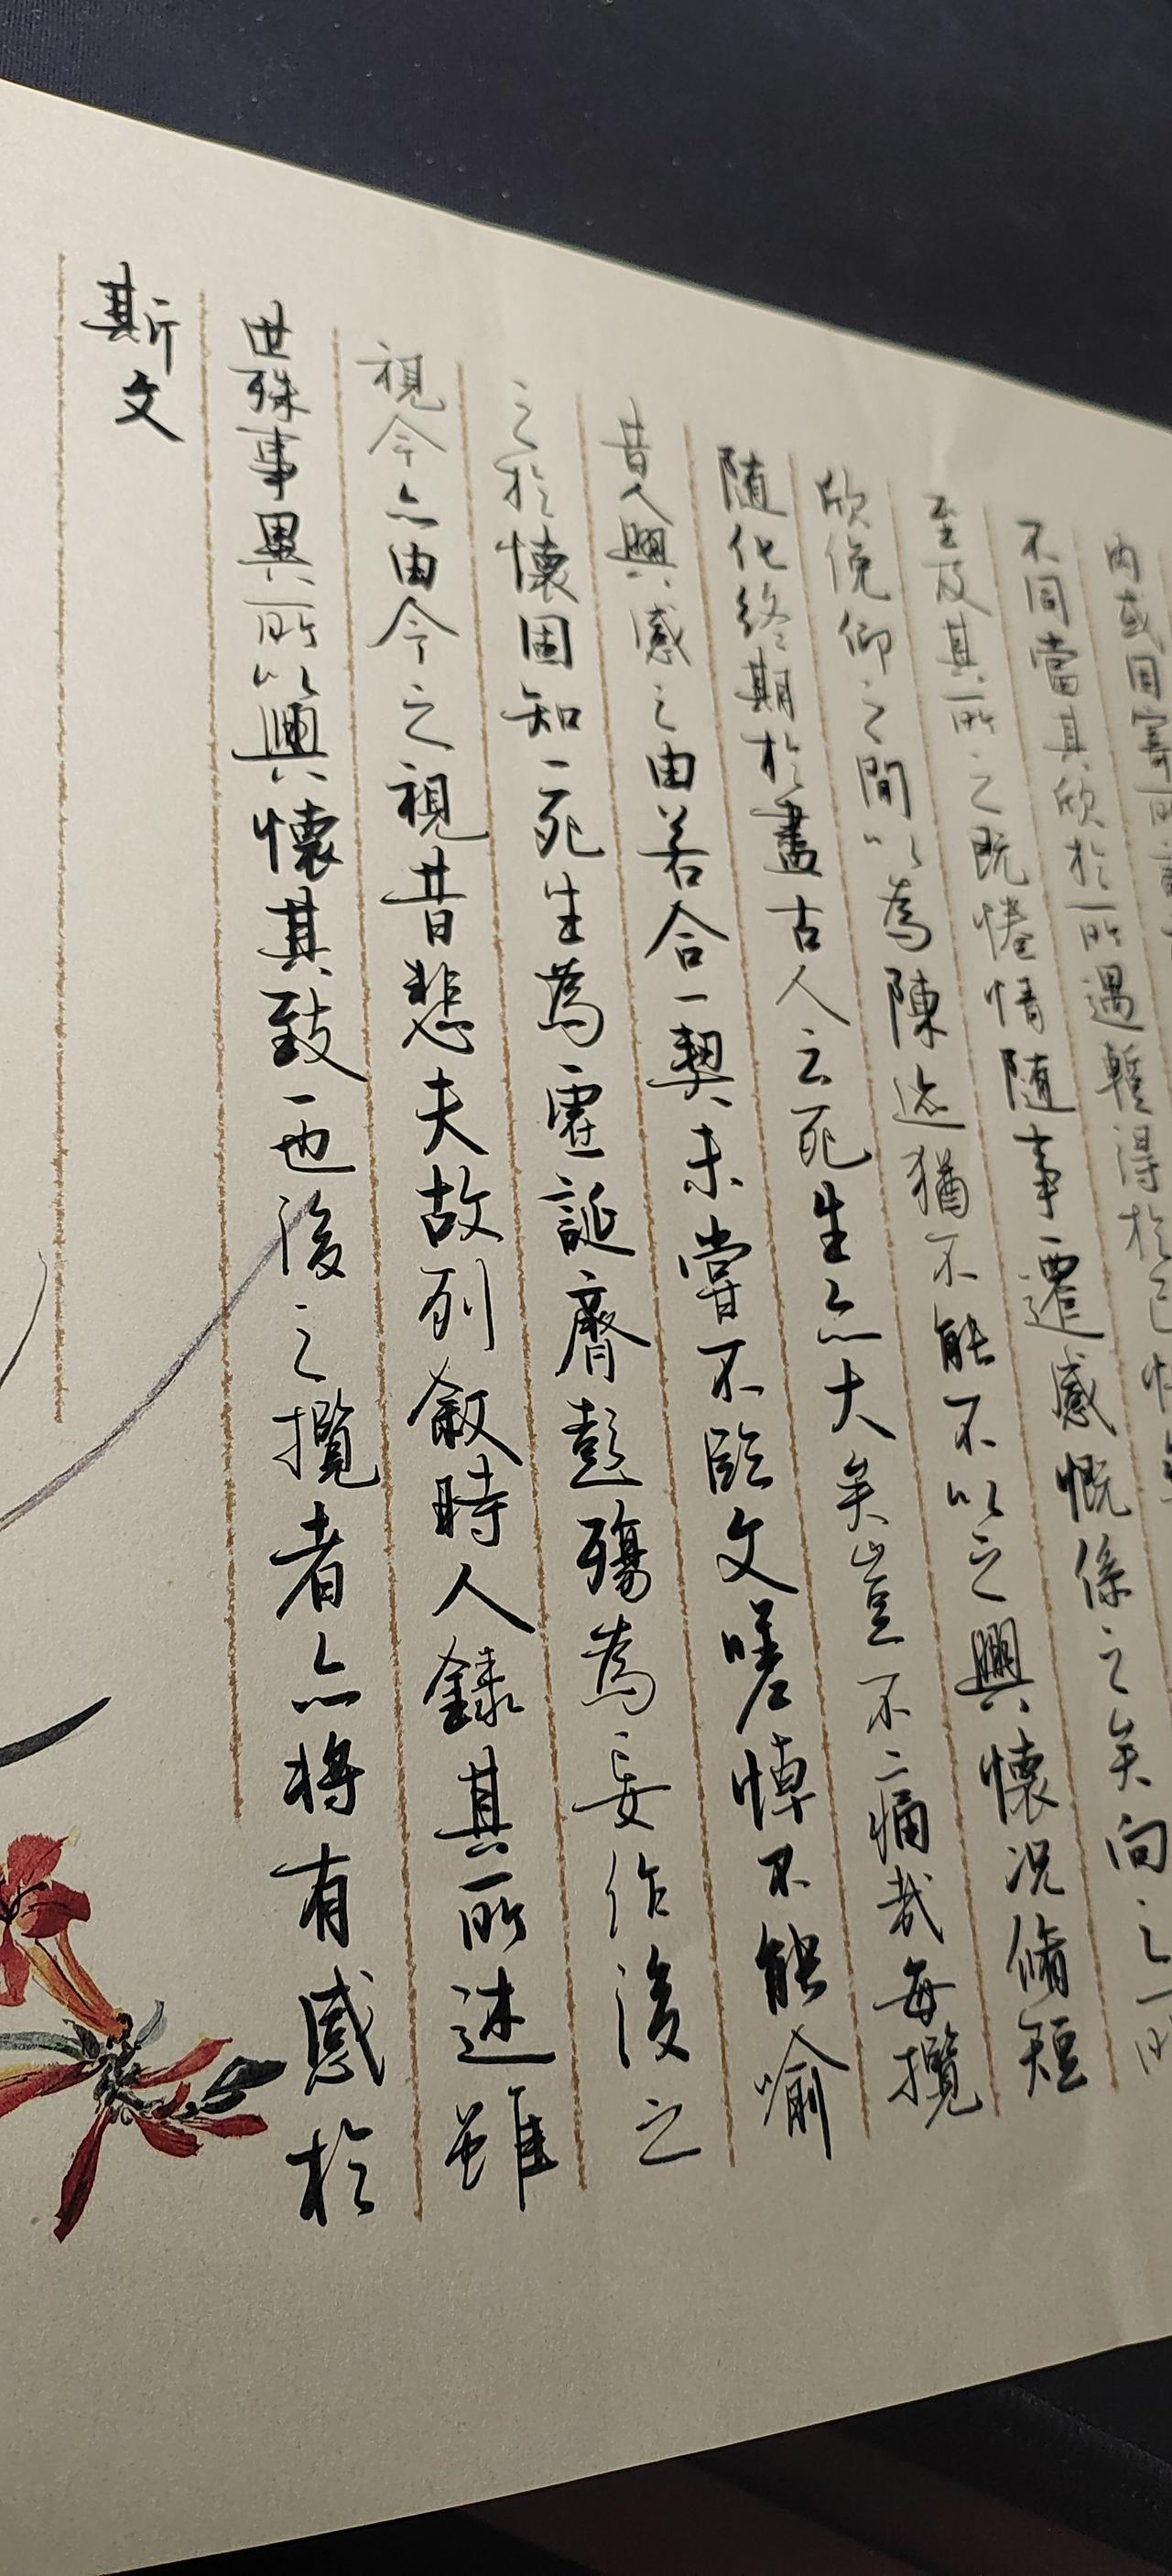 内或因寄所
不同當其欣於所遇暫得於己
至及其所之既惓情随事遷感慨係之矣向之所
欣俛仰之間以為陳迹猶不能不以之興懷况脩短
随化終期於盡古人云死生亦大矣豈不痛哉每攬
昔人興感之由若合一契未嘗不臨文嗟悼不能喻
之於懷固知一死生為虛誕齊彭殤為妄作後之
視今亦由今之視昔悲夫故列敘時人錄其所述雖
世殊事異所以興懷其致一也後之攬者亦將有感於
斯文